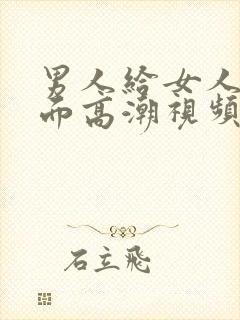 男人給女人
而高潮視頻
石立飛